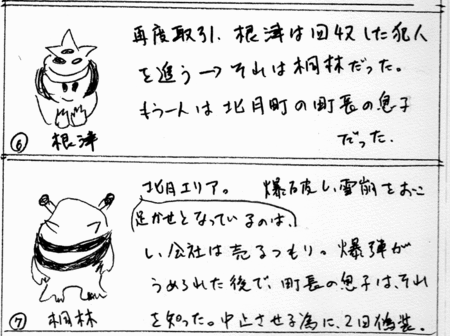 再度取引、根津は回収した犯人
を追う→それは桐林だった。
もう一人は北月町の町長の息子
だった.
⑥ 根津
北月エリア。 爆破し、雪崩をおこ
足かせとなっているのは、
し、会社は売るつもり。爆弾が
うめられた後で、町長の息子は、それ
を知った。中止させる為に、2回偽装。
⑦ 桐林